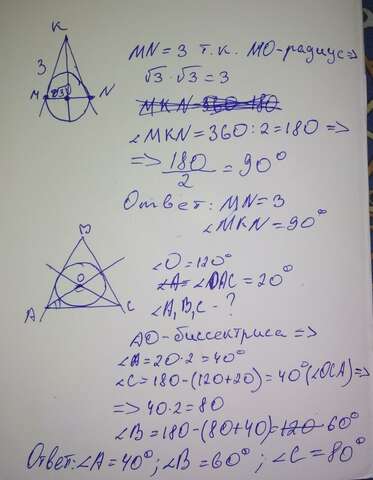 K
3
M
√3
N
MN = 3 т.к. MO-радиус =>
√3 · √3 = 3
MKN = 360 180
∠MKN = 360 : 2 = 180 =>
=> 180/2 = 90°
Ответ: MN = 3
∠MKN = 90°
B
O
A
C
∠O = 120°
∠A = ∠OAC = 20°
∠A, B, C - ?
AO-биссектриса =>
∠A = 20 · 2 = 40°
∠C = 180 - (120 + 20) = 40° (∠OCA) =>
=> 40 · 2 = 80
∠B = 180 - (80 + 40) = 120 60°
Ответ: ∠A = 40°; ∠B = 60°; ∠C = 80°